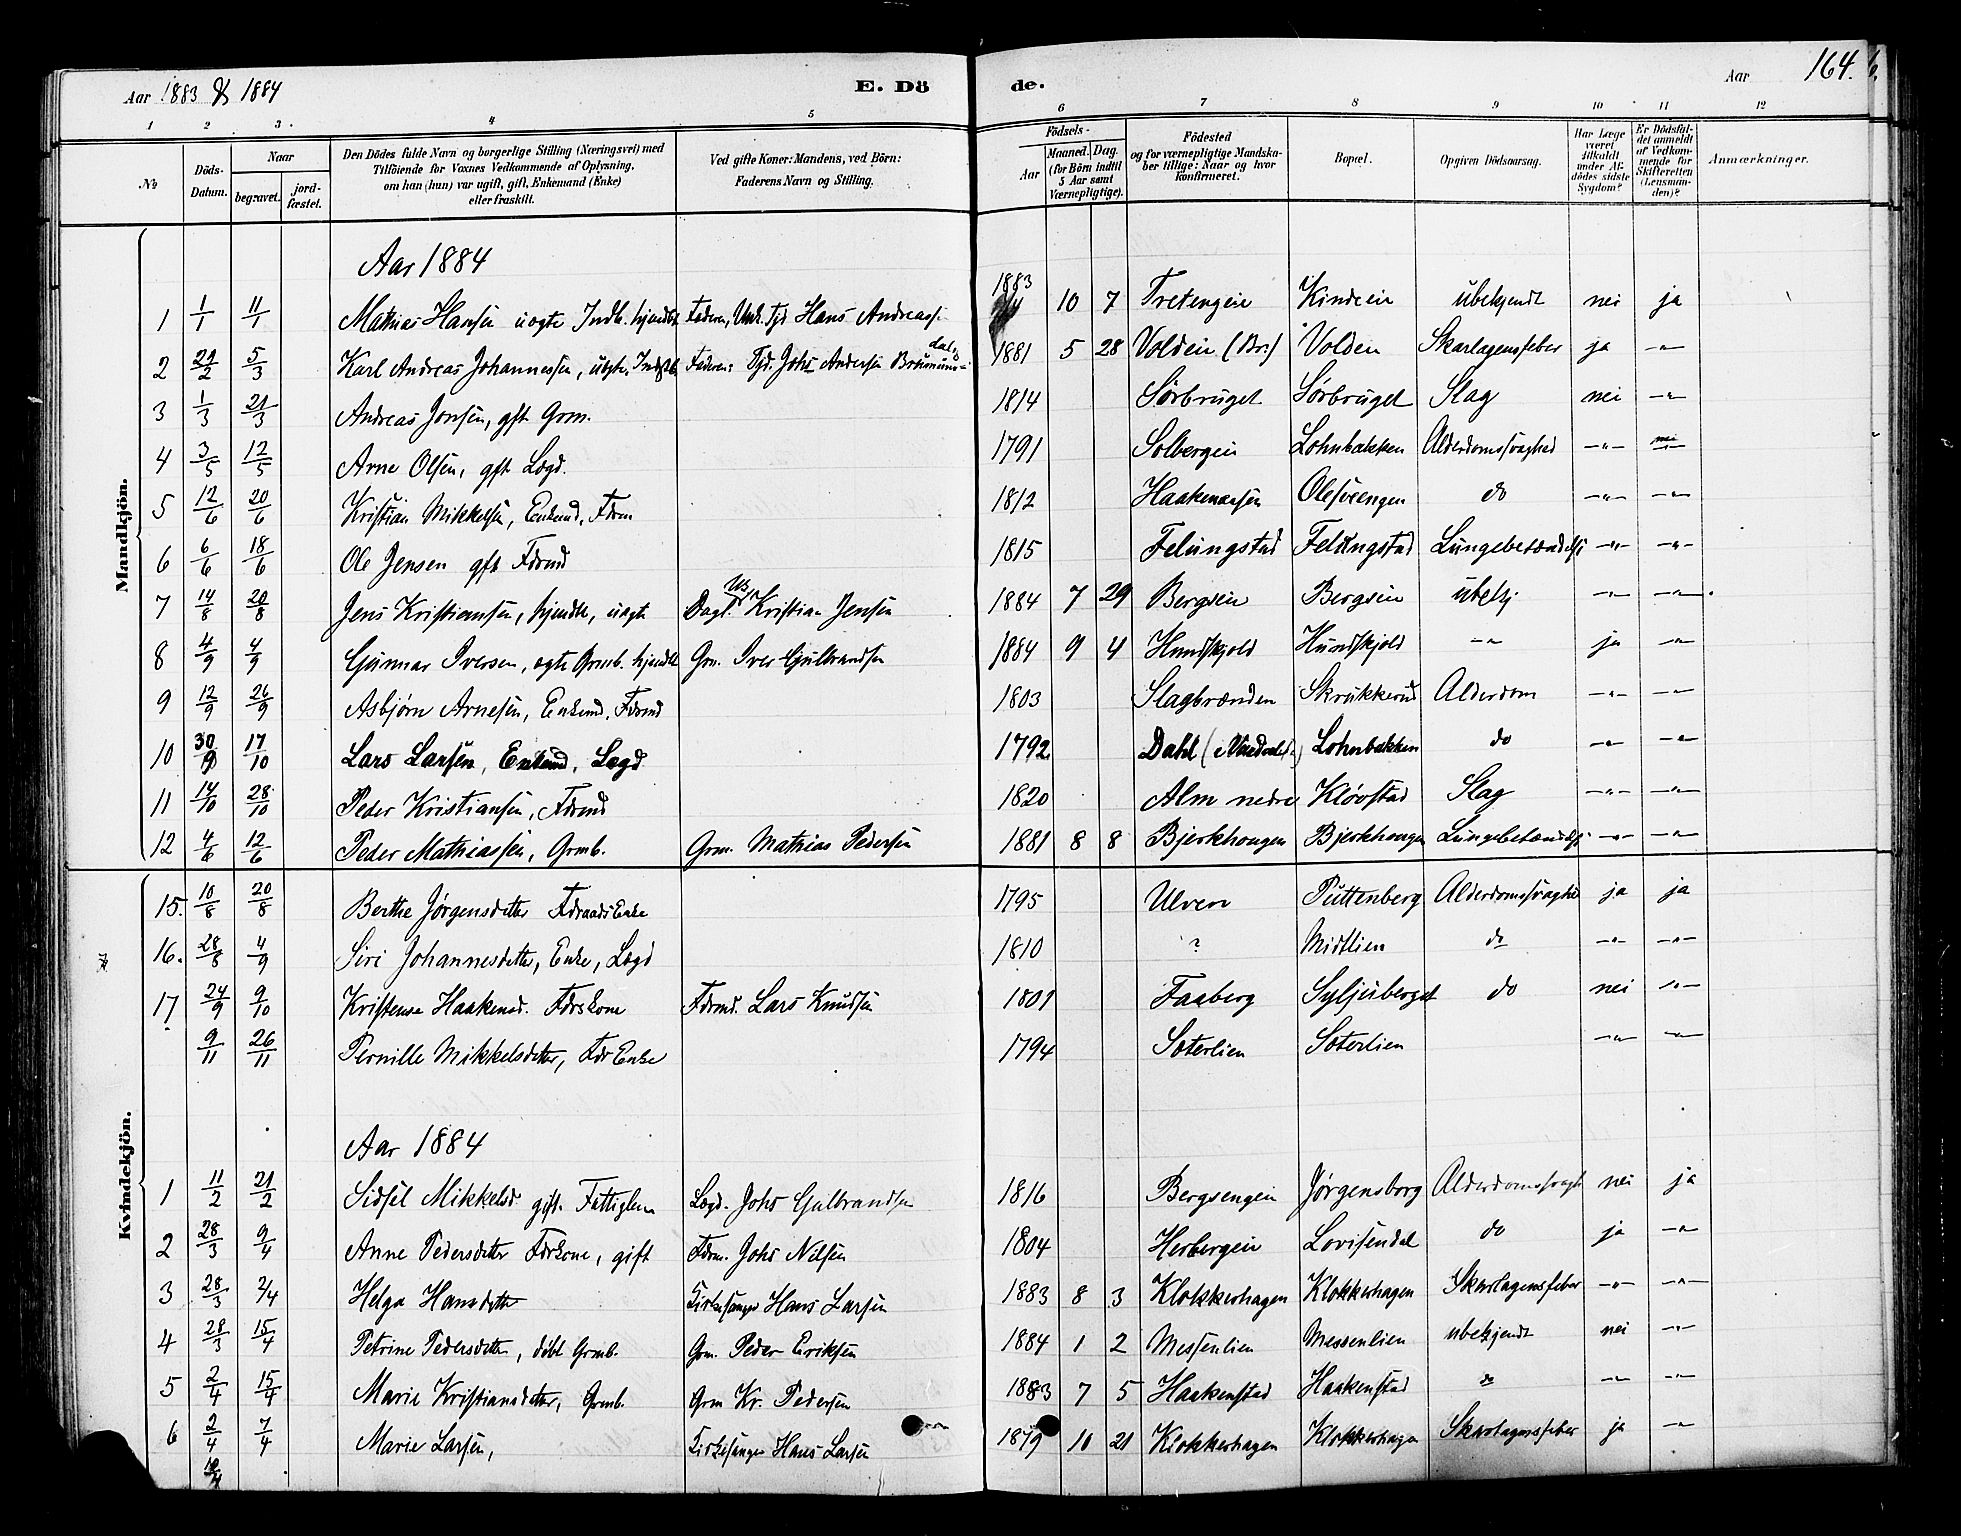 Aar 1883 & 1884 E. Dö de. Aar 164.
1 2 3 4 5 6 7 8 9 10 11 12
№ Döds-Datum. Naar begravet. jordfæstet. Den Dödes fulde Navn og borgerlige Stilling (Næringsvei) med Tilföiende for Voxnes Vedkommende af Oplysning, om han (hun) var ugift, gift, Enkemand (Enke) eller fraskilt. Ved gifte Koner: Mandens, ved Börn: Faderens Navn og Stilling. Födsels- Aar Maaned. Dag. (for Börn indtil 5 Aar samt Værnepligtige). Födested og for værnepligtige Mandskaber tillige: Naar og hvor konfirmeret. Bopæl. Opgiven Dödsaarsag. Har Læge været tilkaldt under Afdödes sidste Sygdom? Er Dödsfaldet anmeldt af Vedkommende for Skifteretten (Lensmanden)? Anmærkninger.
Mandkjön.
Aar 1884
1 1/1 11/1 Mathias Hansen uægte Indb. hjemdbt Faderen, Ungk. Tjd Hans Andreass. 1883 10 7 Tretengeie Kindeeie ubekjendt nei ja
2 29/2 5/3 Karl Andreas Johannessen, uægte, Faderen: Tjd. Johs Andersen Brummundal 1881 5 28 Voldeie (Br.) Volden Skarlagensfeber ja -"-
3 1/3 21/3 Andreas Jonsen, gft Grm. 1814 Sørbruget Sørbruget Slag nei -"-
4 3/5 12/5 Arne Olsen, gft Lægd. 1791 Solbergeie Lohnbakken Alderdomssvaghed -"- nei
5 12/6 20/6 Kristian Mikkelsen, Enkmd, Fdrm 1812 Haakenaasen Olesveengen do -"- -"-
6 6/6 18/6 Ole Jensen gft Fdrmd 1815 Felungstad Felungstad Lungebetændelse -"- -"-
7 14/8 20/8 Jens Kristiansen, hjemdbt, uægte Dagl. Uk. Kristian Jensen 1884 7 29 Bergseie Bergseie ubekj -"- -"-
8 4/9 4/9 Gunnar Iversen, ægte Grmb. hjemdbt Grm. Iver Gulbrandsen 1884 9 4 Hundskjold Hundskjold -"- ja -"-
9 12/9 26/9 Asbjørn Arnesen, Enkemd, Fdrmd 1803 Slagbrænden Skrukkerud Alderdom -"- -"-
10 30/9 17/10 Lars Larsen, Enkemd, Lægd 1792 Dahl Lohnbakken do -"- -"-
11 14/10 28/10 Peder Kristiansen, Fdrmd 1820 Alm nedre Kløvstad Slag -"- -"-
12 4/6 12/6 Peder Mathiassen, Grmb. Grm. Mathias Pedersen 1881 8 8 Bjerkhougen Bjerkhougen Lungebetændelse -"- -"-
Kvindekjön.
15. 10/8 20/8 Berthe Jørgensdatter Fdraads Enke 1795 Ulven Puttenberg Alderdomssvaghed ja ja
16. 28/8 4/9 Siri Johannesdatter, Enke, Lægd 1810 ? Midtlien do -"- -"-
17 24/9 9/10 Kristense Haakensd. Fdrskone Fdrmd. Lars Knudsen 1801 Faaberg Syljuberget do nei -"-
9/11 26/11 Pernille Mikkelsdatter, Fdr Enke 1794 Sæterlien Sæterlien -"- -"-
Aar 1884
1 11/2 21/2 Sidsel Mikkelsd gift. Fattiglem Lægd. Johs Gulbrandsen 1816 Bergsengeie Jørgensborg Alderdomssvagh nei ja
2 28/3 9/4 Anne Pedersdatter Fdrkone, gift Fdrm. Johs Nilsen 1804 Herbergeie Lovisendal do ja -"-
3 28/3 2/4 Helga Hansdatter Kirkesanger Hans Larsen 1883 8 3 Klokkerhagen Klokkerhagen Skarlagensfeber -"- -"-
4 28/3 15/4 Petrine Pedersdatter, døbt Grmb. Grm. Peder Eriksen 1884 1 2 Messenlien Messenlien ubekjendt nei -"-
5 2/4 15/4 Marie Kristiansdatter, Grmb. Grm Kr. Pedersen 1883 7 5 Haakenstad Haakenstad do -"- -"-
6 2/4 7/4 Marie Larsen, Kirkesanger Hans Larsen 1879 10 21 Klokkerhagen Klokkerhagen Skarlagensfeber ja -"-